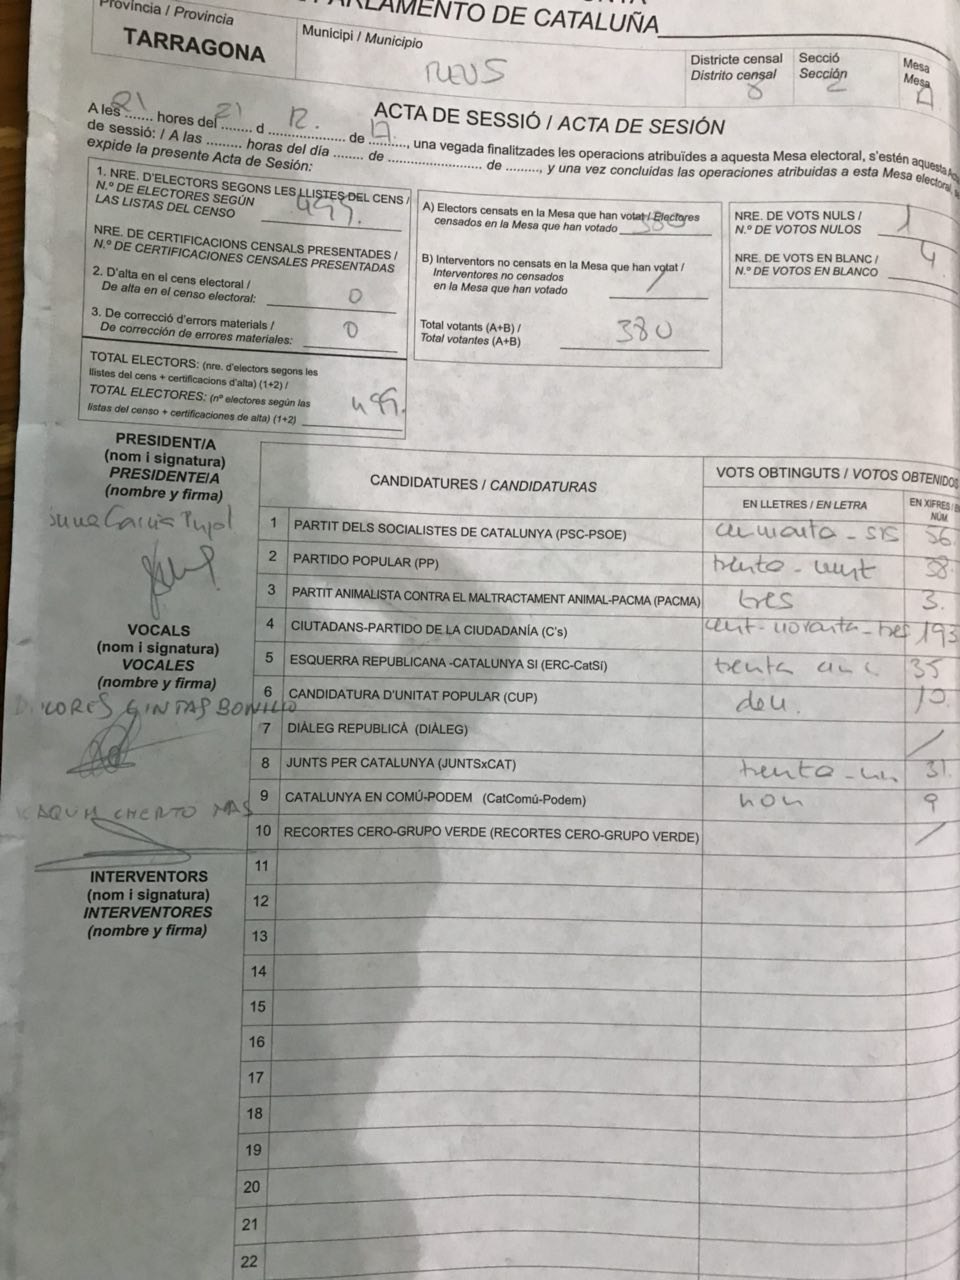 PARLAMENTO DE CATALUÑA
Província / Provincia
TARRAGONA
Municipi / Municipio
REUS
Districte censal
Distrito censal
8
Secció
Sección
2
Mesa
Mesa
A
ACTA DE SESSIÓ / ACTA DE SESIÓN
A les 21 hores del 21 d 12. de 17, una vegada finalitzades les operacions atribuïdes a aquesta Mesa electoral, s'estén aquesta
de sessió: / A las ......... horas del día ........ de .......................... de ........., y una vez concluidas las operaciones atribuidas a esta Mesa electoral,
expide la presente Acta de Sesión:
1. NRE. D'ELECTORS SEGONS LES LLISTES DEL CENS /
N.º DE ELECTORES SEGÚN
LAS LISTAS DEL CENSO 499.
NRE. DE CERTIFICACIONS CENSALS PRESENTADES /
N.º DE CERTIFICACIONES CENSALES PRESENTADAS
2. D'alta en el cens electoral /
De alta en el censo electoral: 0
3. De correcció d'errors materials /
De corrección de errores materiales: 0
TOTAL ELECTORS: (nre. d'electors segons les
llistes del cens + certificacions d'alta) (1+2) /
TOTAL ELECTORES: (nº electores según las
listas del censo + certificaciones de alta) (1+2) 499.
A) Electors censats en la Mesa que han votat / Electores
censados en la Mesa que han votado 380
B) Interventors no censats en la Mesa que han votat /
Interventores no censados
en la Mesa que han votado /
Total votants (A+B) /
Total votantes (A+B) 380
NRE. DE VOTS NULS /
N.º DE VOTOS NULOS 1
NRE. DE VOTS EN BLANC /
N.º DE VOTOS EN BLANCO 4
PRESIDENT/A
(nom i signatura)
PRESIDENTE/A
(nombre y firma)
Garcia Pujol
VOCALS
(nom i signatura)
VOCALES
(nombre y firma)
BONILLO
MAS
INTERVENTORS
(nom i signatura)
INTERVENTORES
(nombre y firma)
CANDIDATURES / CANDIDATURAS
VOTS OBTINGUTS / VOTOS OBTENIDOS
EN LLETRES / EN LETRA
EN XIFRES /
NÚM
1 PARTIT DELS SOCIALISTES DE CATALUNYA (PSC-PSOE) cinquanta-sis 56
2 PARTIDO POPULAR (PP) trenta-vuit 38.
3 PARTIT ANIMALISTA CONTRA EL MALTRACTAMENT ANIMAL-PACMA (PACMA) tres 3.
4 CIUTADANS-PARTIDO DE LA CIUDADANÍA (C's) cent-noranta-tres 193
5 ESQUERRA REPUBLICANA -CATALUNYA SI (ERC-CatSí) trenta cinc 35
6 CANDIDATURA D'UNITAT POPULAR (CUP) deu. 10
7 DIÀLEG REPUBLICÀ (DIÀLEG) /
8 JUNTS PER CATALUNYA (JUNTSxCAT) trenta-un 31
9 CATALUNYA EN COMÚ-PODEM (CatComú-Podem) nou 9
10 RECORTES CERO-GRUPO VERDE (RECORTES CERO-GRUPO VERDE) /
11
12
13
14
15
16
17
18
19
20
21
22